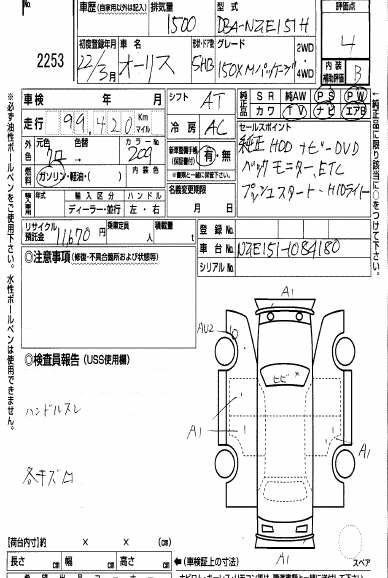 車歴 (自家用以外は記入) 排気量 型式 評価点
1500 DBA-NZE151H
4
2253
初度登録年月 車名 形状・ドア数 グレード 2WD
4WD
22/3月 オーリス 5HB 150X Mパッケージ
内装補助評価 B
車検 年 月 シフト AT
走行 99,420 Km マイル
冷房 AC
純正品 SR 純AW PS PW
カワ TV ナビ エアB
外色 元色 クロ カラーNo 209
内装色
新車整備手帳(保証書付) 有・無
セールスポイント
純正HDDナビ・DVD
バックモニター、ETC
プッシュスタート・HIDライト
燃料 ガソリン・軽油・( )
輸入車 輸入区分 ハンドル
ディーラー・並行 左・右
名義変更期限
月 日
リサイクル預託金 11,670 円
乗車定員 人
積載量 t
登録No.
車台No. NZE151-1084180
シリアルNo.
◎注意事項 (修復・不具合箇所および状態等)
◎検査員報告 (USS使用欄)
ハンドルスレ
各キズ凹
A1
AU2
ヒビ
A1
A1
A1
スペア
【荷台内寸】約 × ×
長さ cm 幅 cm 高さ cm (車検証上の寸法)
※必ず油性ボールペンをご使用下さい。水性ボールペンは使用できません。
純正品の時のみ該当に○をつけて下さい。